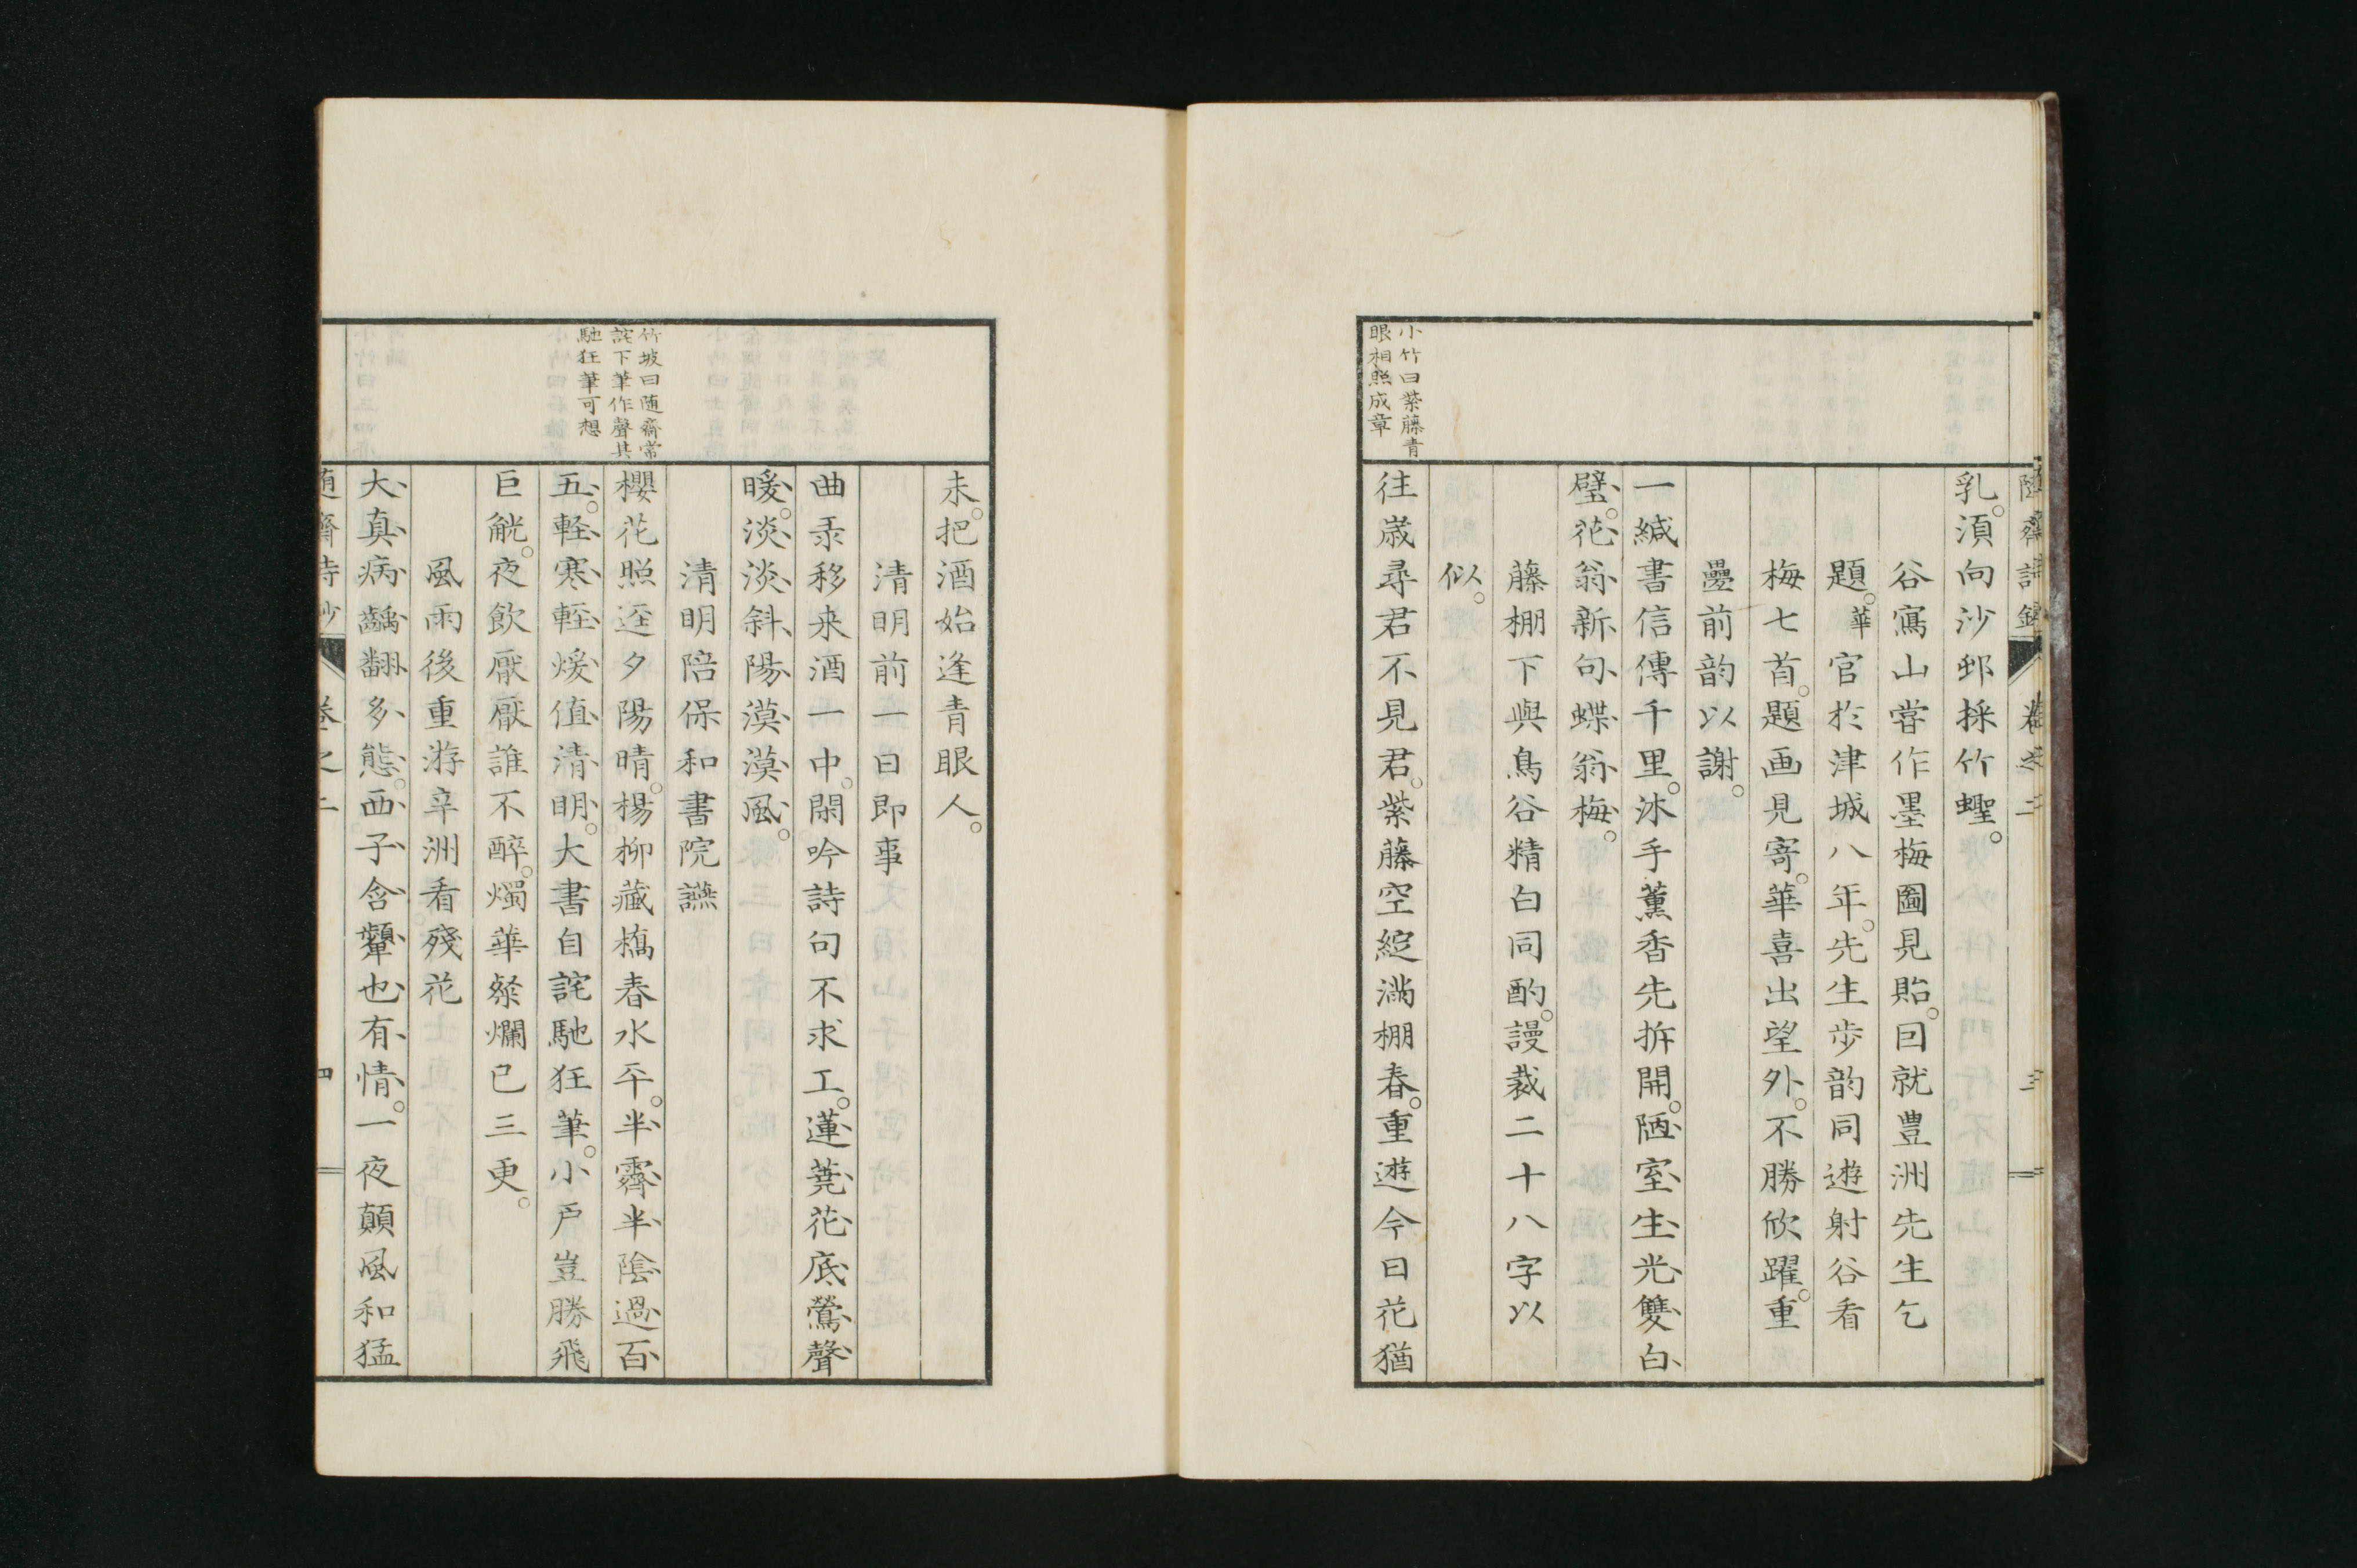 乳。須向沙邨採竹蟶。
谷寫山甞作墨梅圖見貽。因就豊洲先生乞
題。華官於津城八年。先生步韵同遊射谷看
梅七首。題画見寄。華喜出望外。不勝欣躍。重
疊前韵以謝。
一緘書信傳千里。沐手薫香先拆開。陋室生光雙白
璧。花翁新句蝶翁梅。
藤棚下與鳥谷精白同酌。謾裁二十八字以
似。
小竹曰紫藤青
眼相照成章
往歳尋君不見君。紫藤空綻滿棚春。重遊今日花猶
未。把酒始逢青眼人。
清明前一日即事
曲汞移来酒一中。閑吟詩句不求工。蓮蕘花底鶯聲
暖。淡淡斜陽漠漠風。
清明陪保和書院讌
竹坡曰随齋常
詫下筆作聲其
馳狂筆可想
櫻花照逕夕陽晴。楊柳藏橋春水平。半霽半陰過百
五。軽寒軽煖値清明。大書自詫馳狂筆。小戸豈勝飛
巨觥。夜飲厭厭誰不醉。燭華粲爛已三更。
風雨後重游辛洲看殘花
大真病齲翻多態。西子含顰也有情。一夜顛風和猛
随齋詩抄 卷之二 四